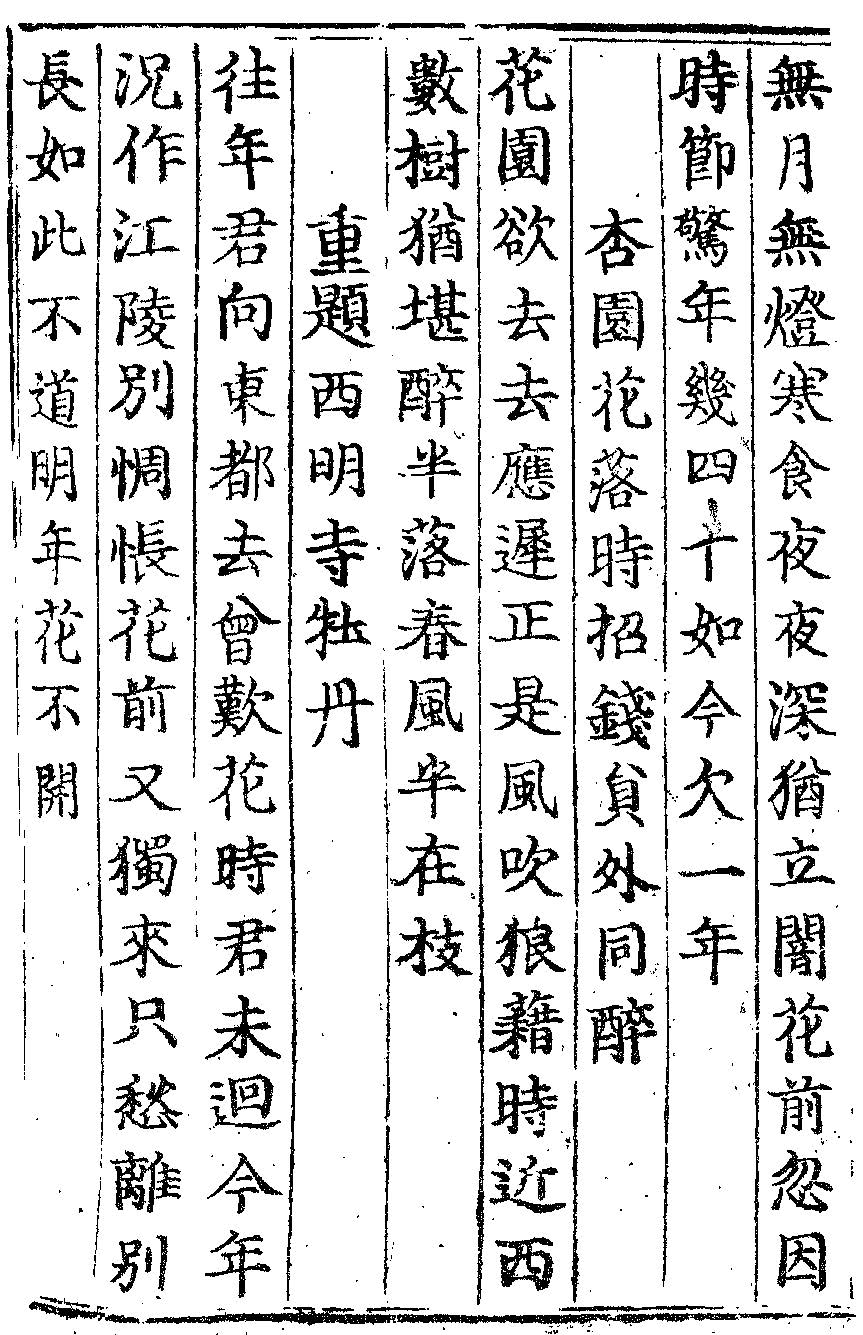 無月無燈寒食夜夜深猶立闇花前忽因
時節驚年幾四十如今欠一年
杏園花落時招錢貟外同醉
花園欲去去應遲正是風吹狼藉時近西
數樹猶堪醉半落春風半在枝
重題西明寺牡丹
往年君向東都去曾歎花時君未迴今年
況作江陵別惆悵花前又獨來只愁離別
長如此不道明年花不開